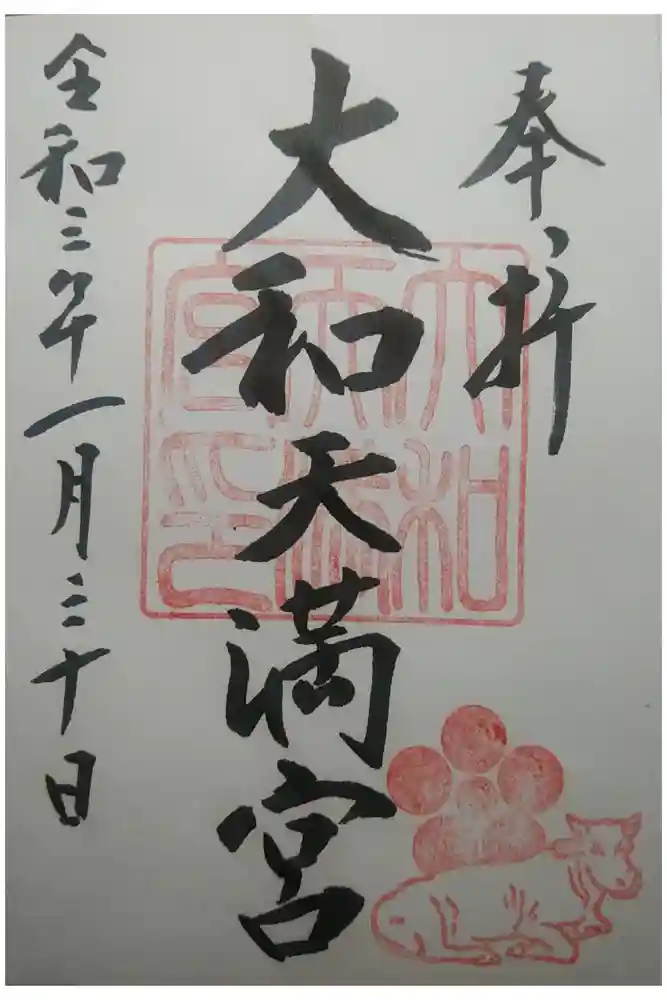 奉拝
大和天満宮
大和天満宮印
令和三年一月三十日